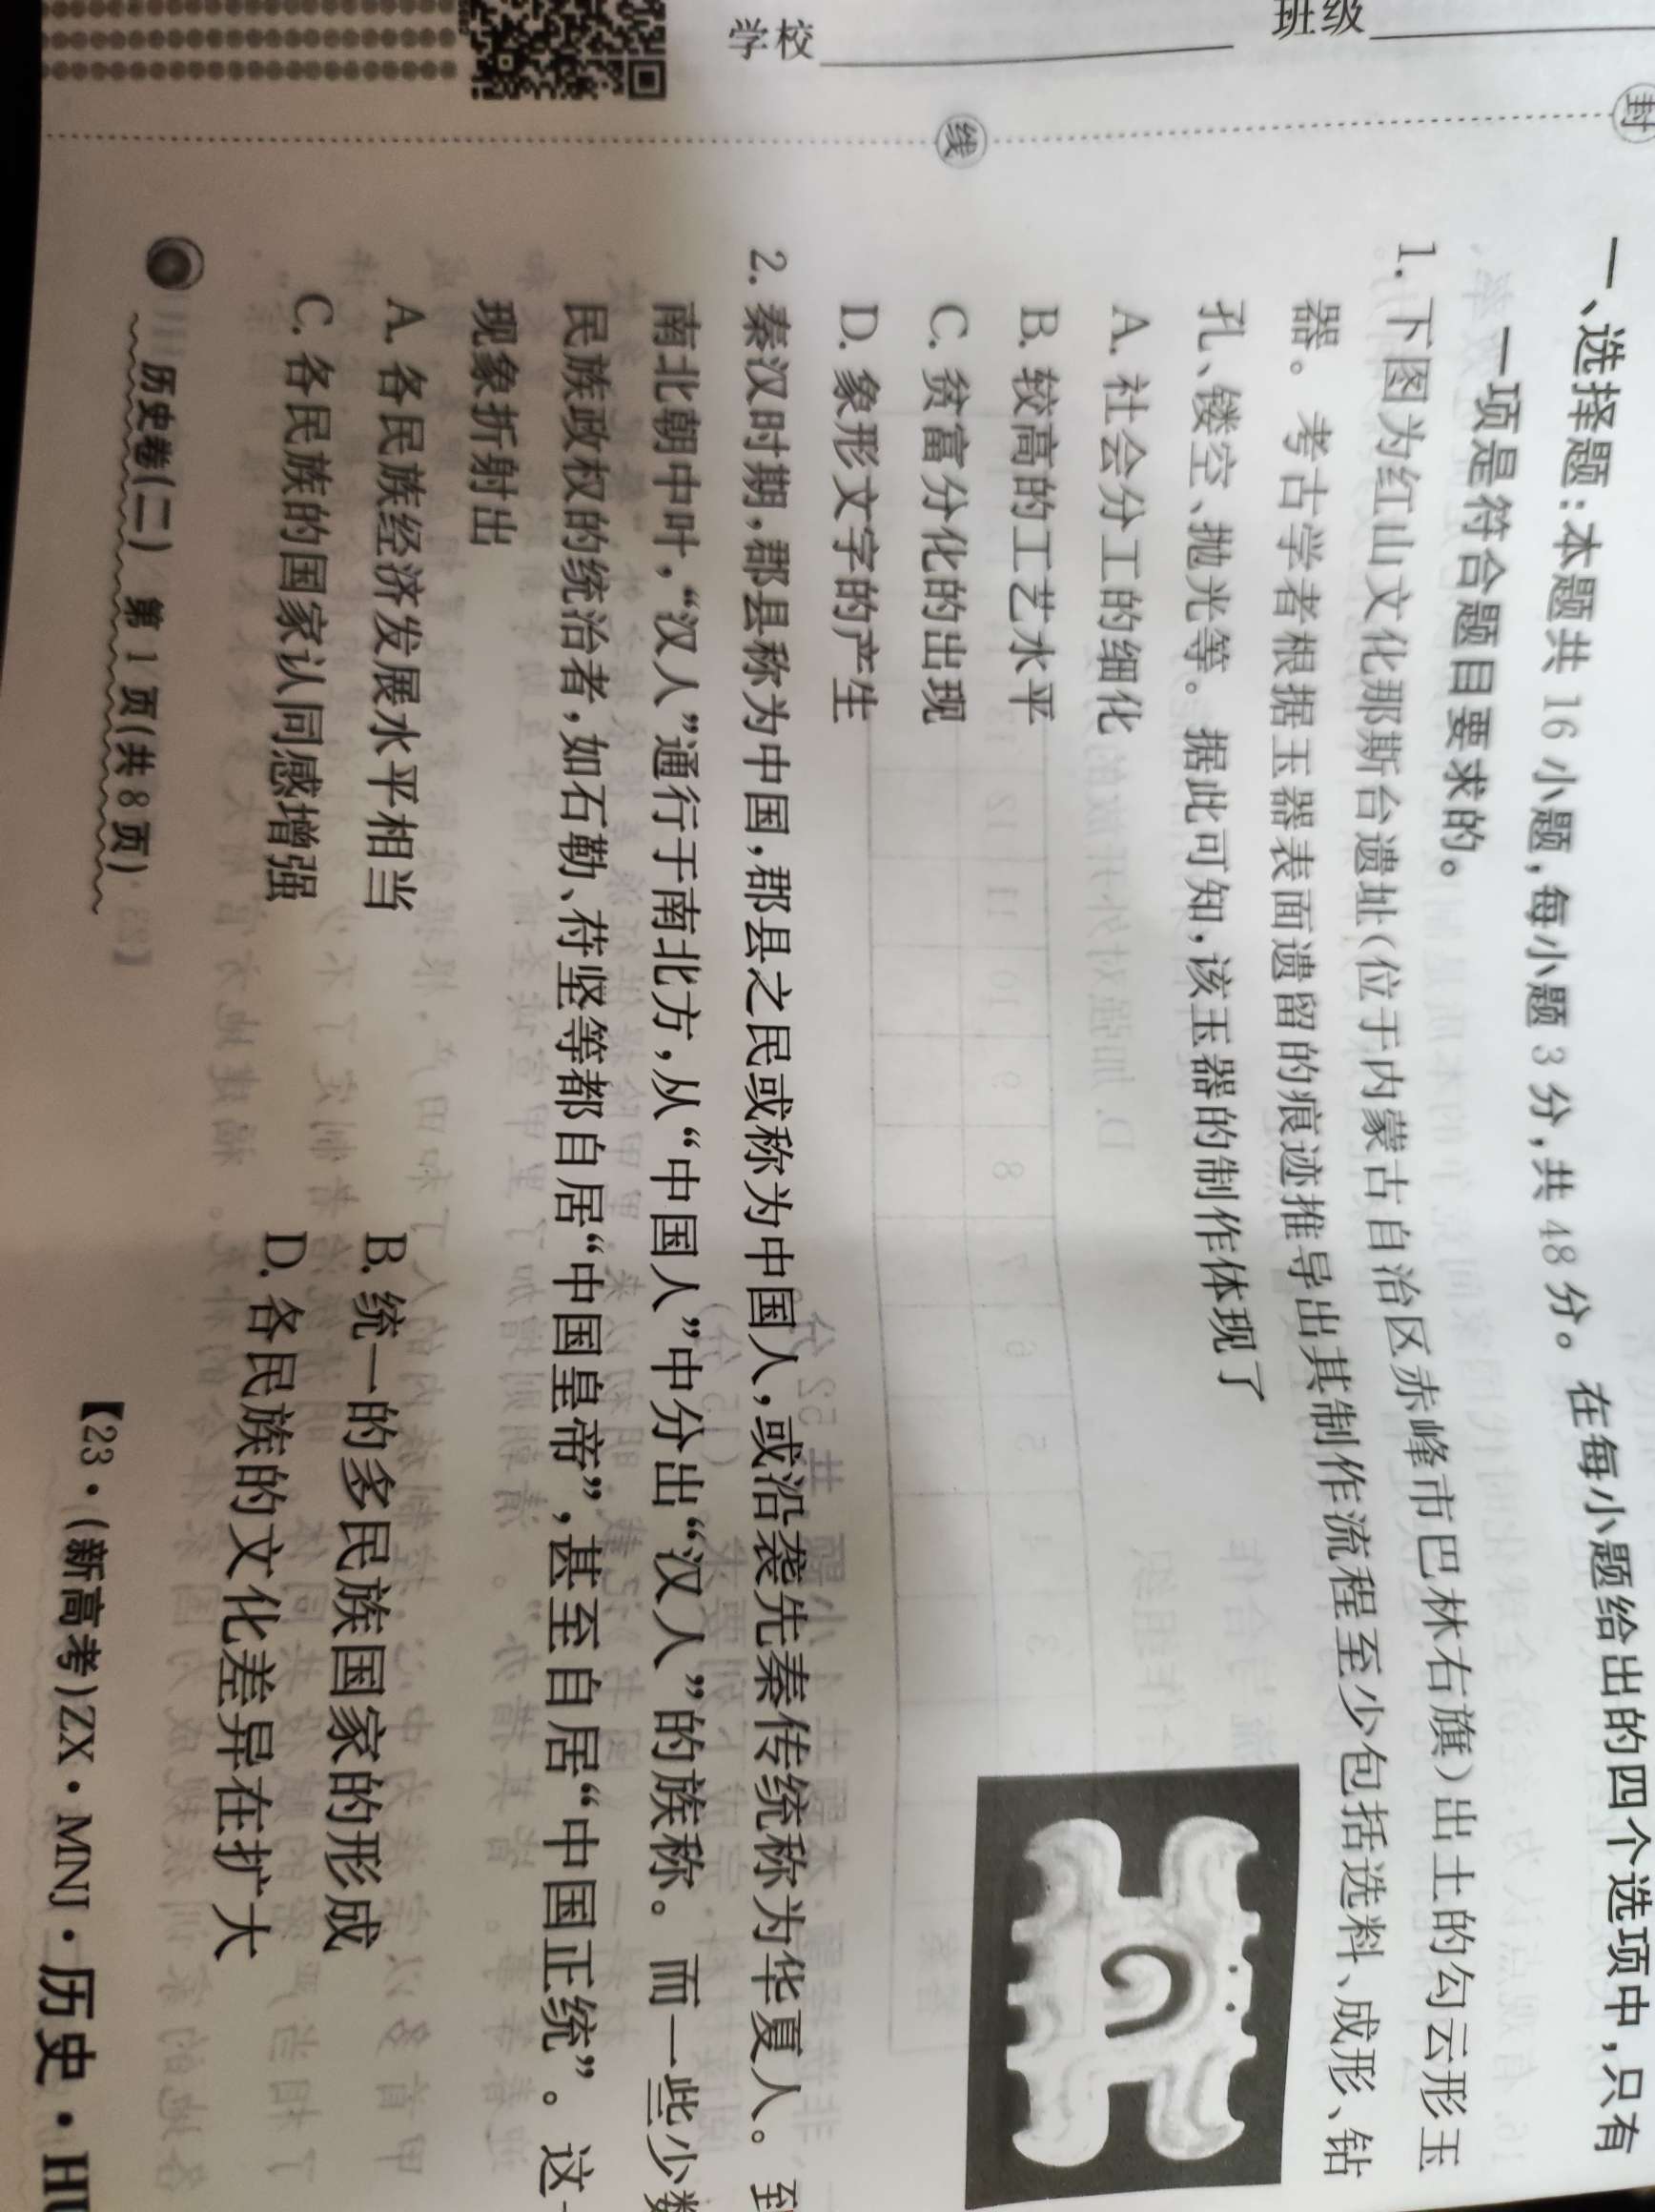 学校
班级
封
线
一、选择题:本题共 16 小题,每小题 3 分,共 48 分。在每小题给出的四个选项中,只有
一项是符合题目要求的。
1. 下图为红山文化那斯台遗址(位于内蒙古自治区赤峰市巴林右旗)出土的勾云形玉
器。考古学者根据玉器表面遗留的痕迹推导出其制作流程至少包括选料、成形、钻
孔、镂空、抛光等。据此可知,该玉器的制作体现了
A. 社会分工的细化
B. 较高的工艺水平
C. 贫富分化的出现
D. 象形文字的产生
2. 秦汉时期,郡县称为中国,郡县之民或称为中国人,或沿袭先秦传统称为华夏人。到
南北朝中叶,“汉人”通行于南北方,从“中国人”中分出“汉人”的族称。而一些少数
民族政权的统治者,如石勒、苻坚等都自居“中国皇帝”,甚至自居“中国正统”。这
现象折射出
A. 各民族经济发展水平相当 B. 统一的多民族国家的形成
C. 各民族的国家认同感增强 D. 各民族的文化差异在扩大
历史卷(二) 第 1 页(共 8 页) 【23·(新高考)ZX·MNJ·历史·HU